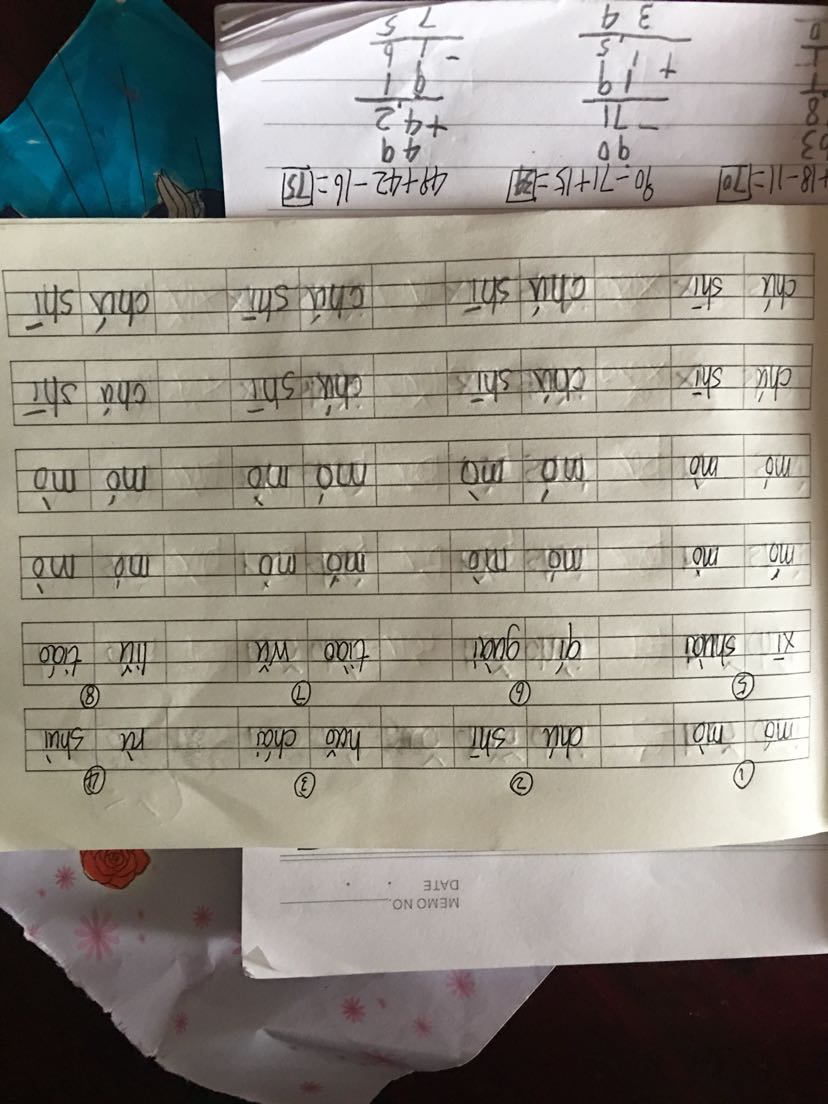 MEMO NO.
DATE
① ② ③ ④
mó mò chú shī hǎo chái rù shuì
⑤ ⑥ ⑦ ⑧
xī shuài qí guài tiào wǔ liǔ tiáo
mó mò mó mò mó mò mó mò
mó mò mó mò mó mò mó mò
chú shī chú shī chú shī chú shī
chú shī chú shī chú shī chú shī
+18-11=70 90-71+15=34 49+42-16=75
63 90 49
-71 +42
19 91
+15 -16
34 75